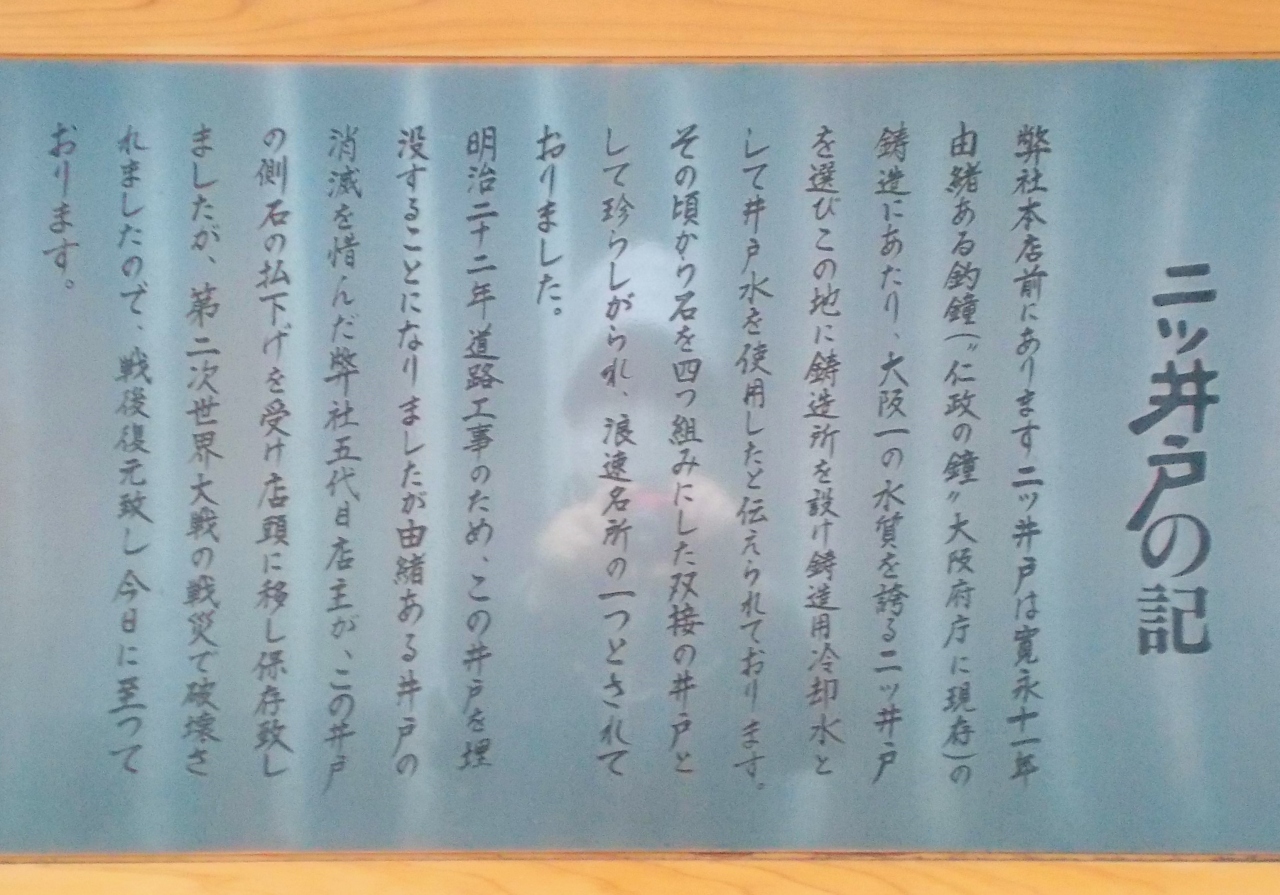 二ッ井戸の記
弊社本店前にあります二ッ井戸は寛永十一年
由緒ある釣鐘(〝仁政の鐘〟大阪府庁に現存)の
鋳造にあたり、大阪一の水質を誇る二ッ井戸
を選びこの地に鋳造所を設け鋳造用冷却水と
して井戸水を使用したと伝えられております。
その頃から石を四つ組みにした双接の井戸と
して珍らしがられ、浪速名所の一つとされて
おりました。
明治二十二年道路工事のため、この井戸を埋
没することになりましたが由緒ある井戸の
消滅を惜んだ弊社五代目店主が、この井戸
の側石の払下げを受け店頭に移し保存致し
ましたが、第二次世界大戦の戦災で破壊さ
れましたので、戦後復元致し今日に至つて
おります。